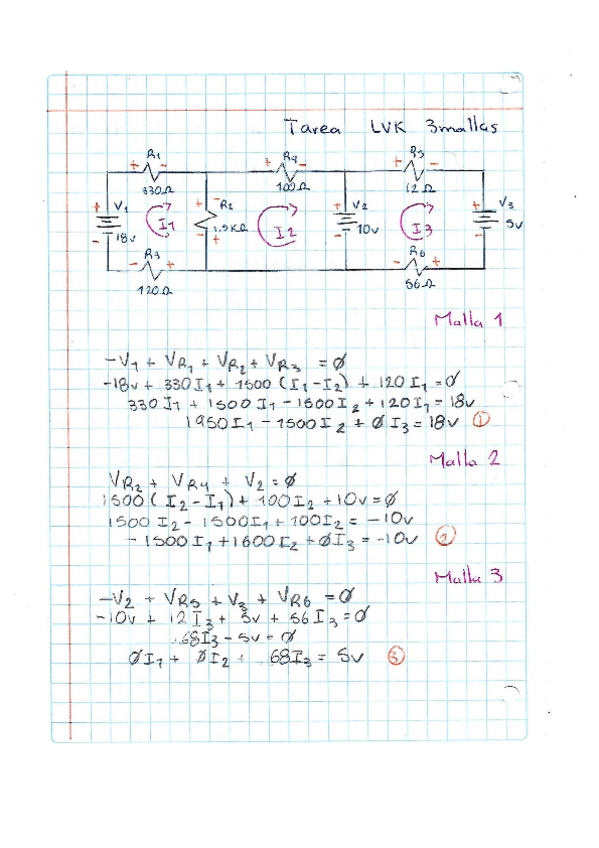 Tarea LVK 3mallas
R1 R4 R5
+ - + - + -
330Ω 100Ω 12Ω
+ V1 I1 + - R2 I2 + V2 I3 + V3
- 18v 1.5KΩ - + - 10v - 5v
R3 R6
- + - +
120Ω 56Ω
Malla 1
-V1 + VR1 + VR2 + VR3 = Ø
-18v + 330I1 + 1500 (I1-I2) + 120I1 = Ø
330I1 + 1500I1 - 1500I2 + 120I1 = 18v
1950I1 - 1500I2 + ØI3 = 18v ①
Malla 2
VR2 + VR4 + V2 = Ø
1500 (I2-I1) + 100I2 + 10v = Ø
1500I2 - 1500I1 + 100I2 = -10v
-1500I1 + 1600I2 + ØI3 = -10v ②
Malla 3
-V2 + VR5 + V3 + VR6 = Ø
-10v + 12I3 + 5v + 56I3 = Ø
68I3 - 5v = Ø
ØI1 + ØI2 + 68I3 = 5v ③